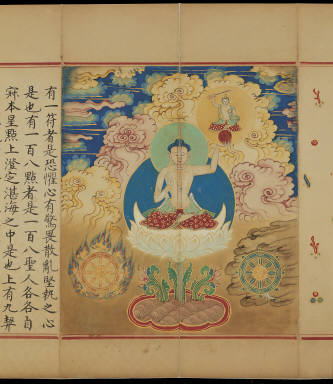 有一符者是恐懼心有驚畏散亂堅執之心
是也有一百八點者是一百八聖人各各自
寂本呈點上澄定湛海之中是也上有九契